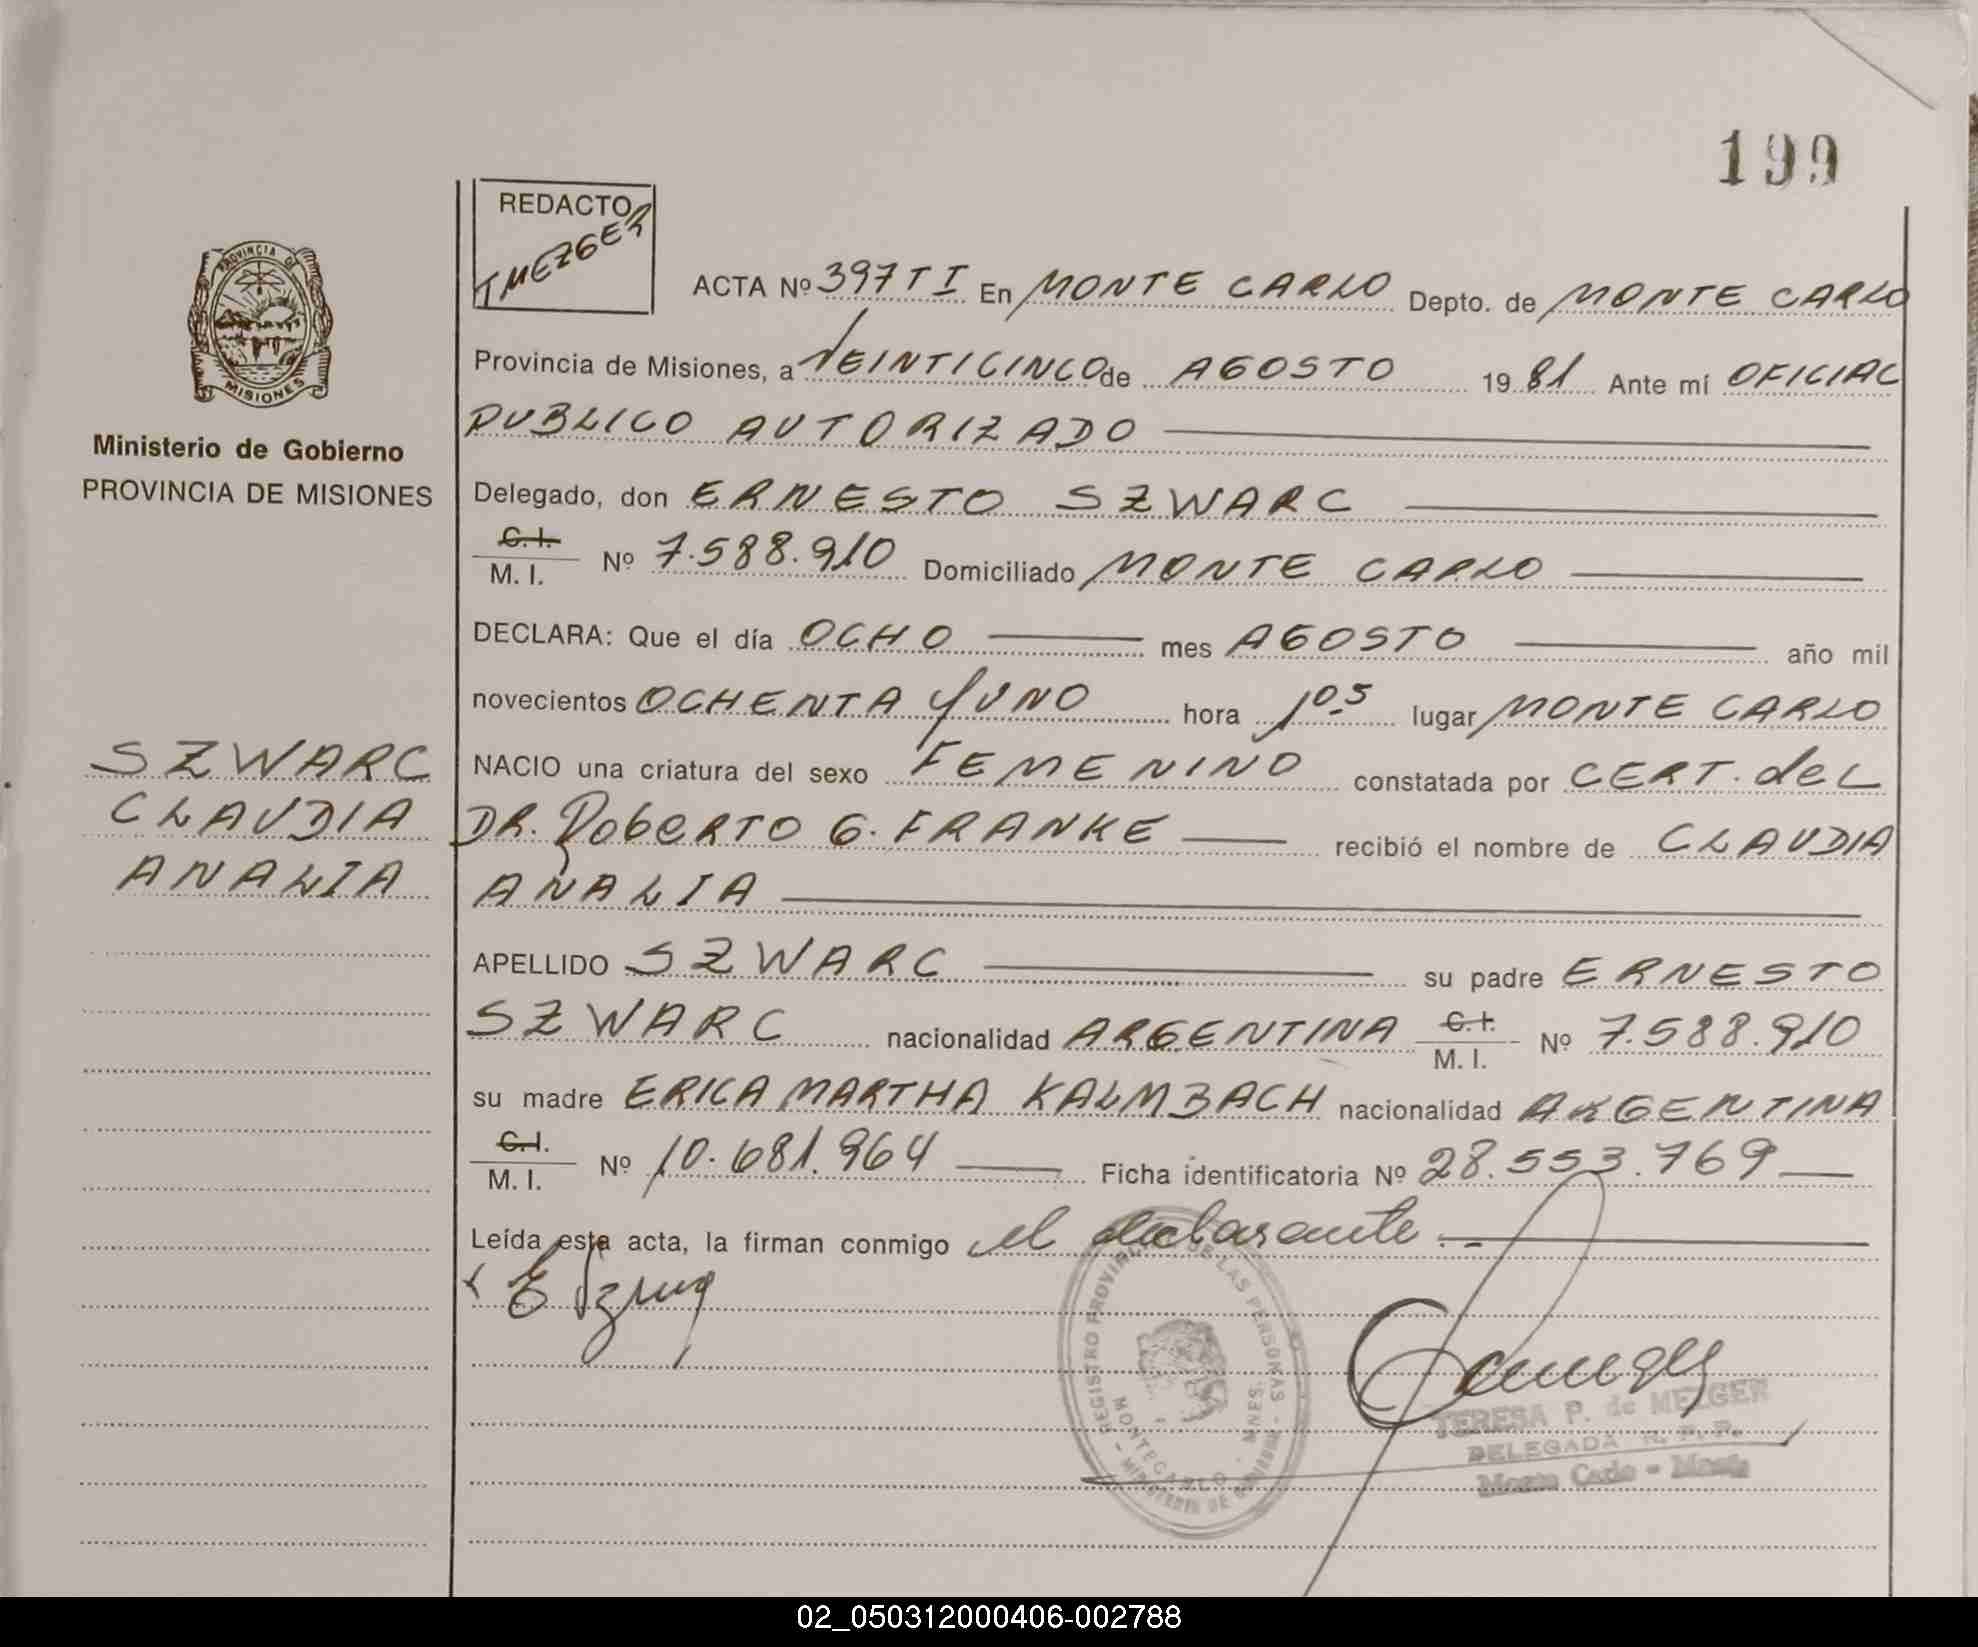 199
REDACTO
TMEZGER
PROVINCIA DE
MISIONES
Ministerio de Gobierno
PROVINCIA DE MISIONES
SZWARC
CLAUDIA
ANALIA
ACTA Nº 397 TI En MONTE CARLO Depto. de MONTE CARLO
Provincia de Misiones, a VEINTICINCO de AGOSTO 1981 Ante mí OFICIAL
PUBLICO AUTORIZADO
Delegado, don ERNESTO SZWARC
C. I.
M. I. Nº 7.588.910 Domiciliado MONTE CARLO
DECLARA: Que el día OCHO mes AGOSTO año mil
novecientos OCHENTA Y UNO hora 1,05 lugar MONTE CARLO
NACIO una criatura del sexo FEMENINO constatada por CERT. del
DR. RobERTO G. FRANKE recibió el nombre de CLAUDIA
ANALIA
APELLIDO SZWARC su padre ERNESTO
SZWARC nacionalidad ARGENTINA C. I. M. I. Nº 7.588.910
su madre ERICA MARTHA KALMBACH nacionalidad ARGENTINA
C. I.
M. I. Nº 10.681.964 Ficha identificatoria Nº 28.553.769
Leída esta acta, la firman conmigo el declarante.-
REGISTRO PROVINCIAL DE LAS PERSONAS - MINISTERIO DE GOBIERNO -
MONTECARLO - MNES.
TERESA P. de MEZGER
DELEGADA R. P. P.
Monte Carlo - Mnes
02_050312000406-002788